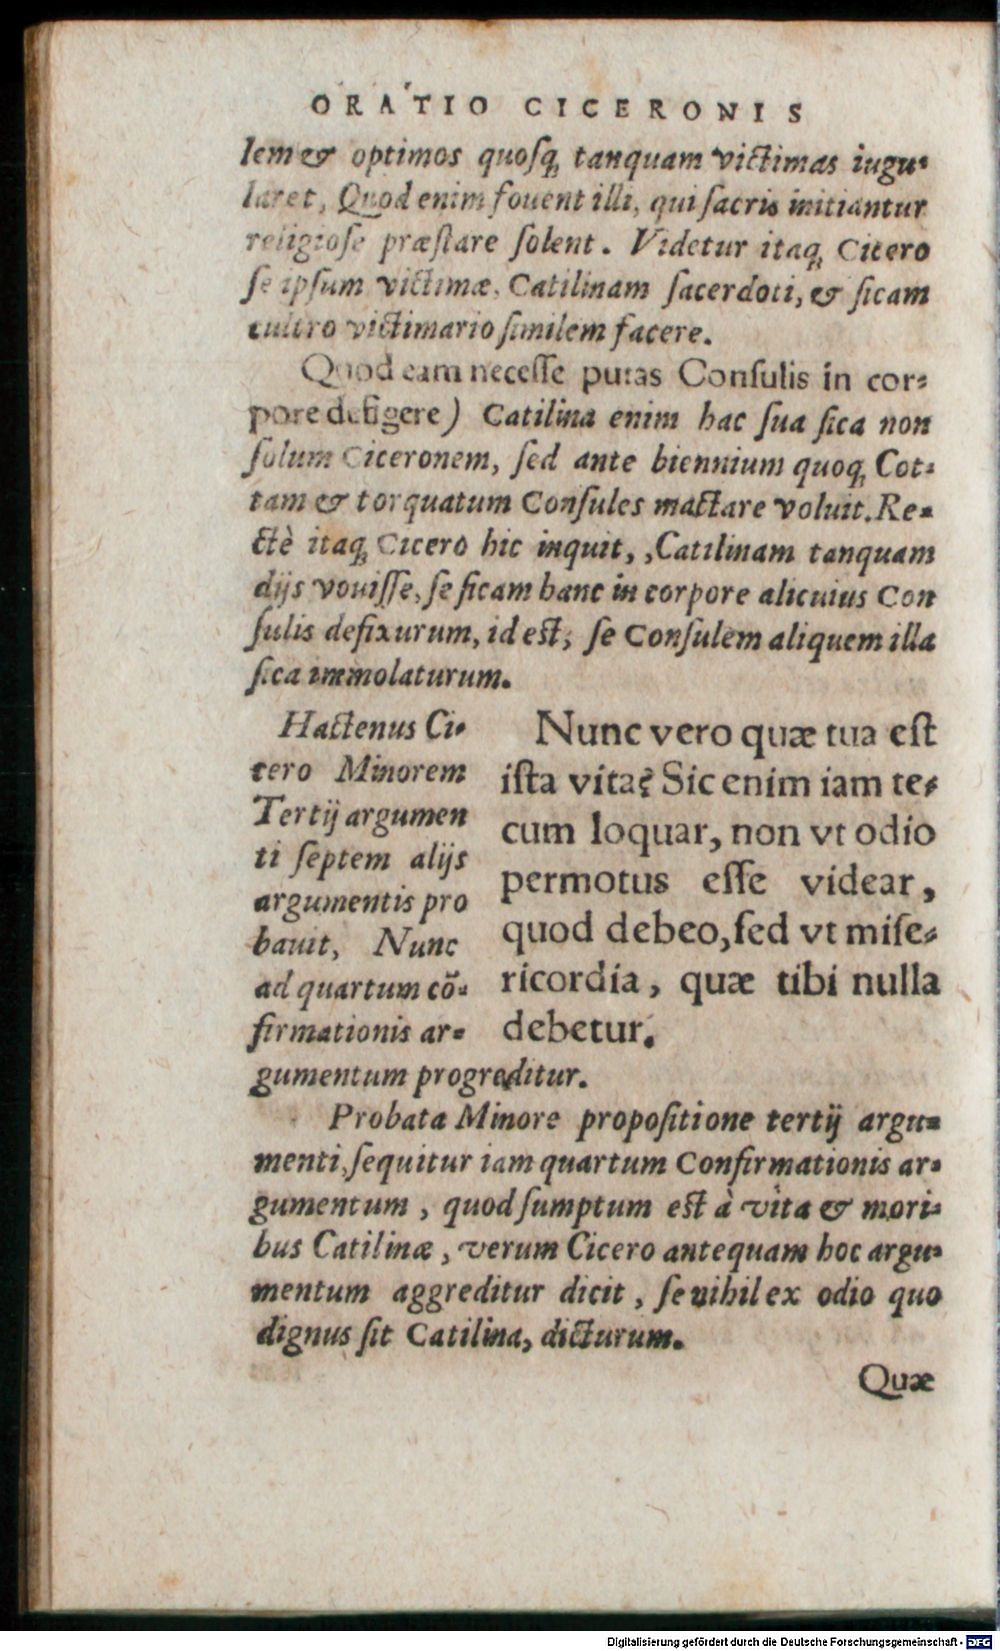 ORATIO CICERONIS
lem & optimos quosq; tanquam victimas iugu-
laret, Quod enim fouent illi, qui sacris initiantur
religiose præstare solent. Videtur itaq; Cicero
se ipsum victimæ, Catilinam sacerdoti, & sicam
cultro victimario similem facere.
Quod eam necesse putas Consulis in cor-
pore defigere) Catilina enim hac sua sica non
solum Ciceronem, sed ante biennium quoq; Cot-
tam & torquatum Consules mactare voluit. Re-
ctè itaq; Cicero hic inquit, ,Catilinam tanquam
dijs vouisse, se sicam hanc in corpore alicuius Con
sulis defixurum, id est, se Consulem aliquem illa
sica immolaturum.
Hactenus Ci-
cero Minorem
Tertij argumen
ti septem alijs
argumentis pro
bauit, Nunc
ad quartum cõ-
firmationis ar-
gumentum progreditur.
Nunc vero quæ tua est
ista vita? Sic enim iam te-
cum loquar, non vt odio
permotus esse videar,
quod debeo, sed vt mise-
ricordia, quæ tibi nulla
debetur.
Probata Minore propositione tertij argu-
menti, sequitur iam quartum Confirmationis ar-
gumentum, quod sumptum est à vita & mori-
bus Catilinæ, verum Cicero antequam hoc argu-
mentum aggreditur dicit, se nihil ex odio quo
dignus sit Catilina, dicturum.
Quæ
Digitalisierung gefördert durch die Deutsche Forschungsgemeinschaft - DFG